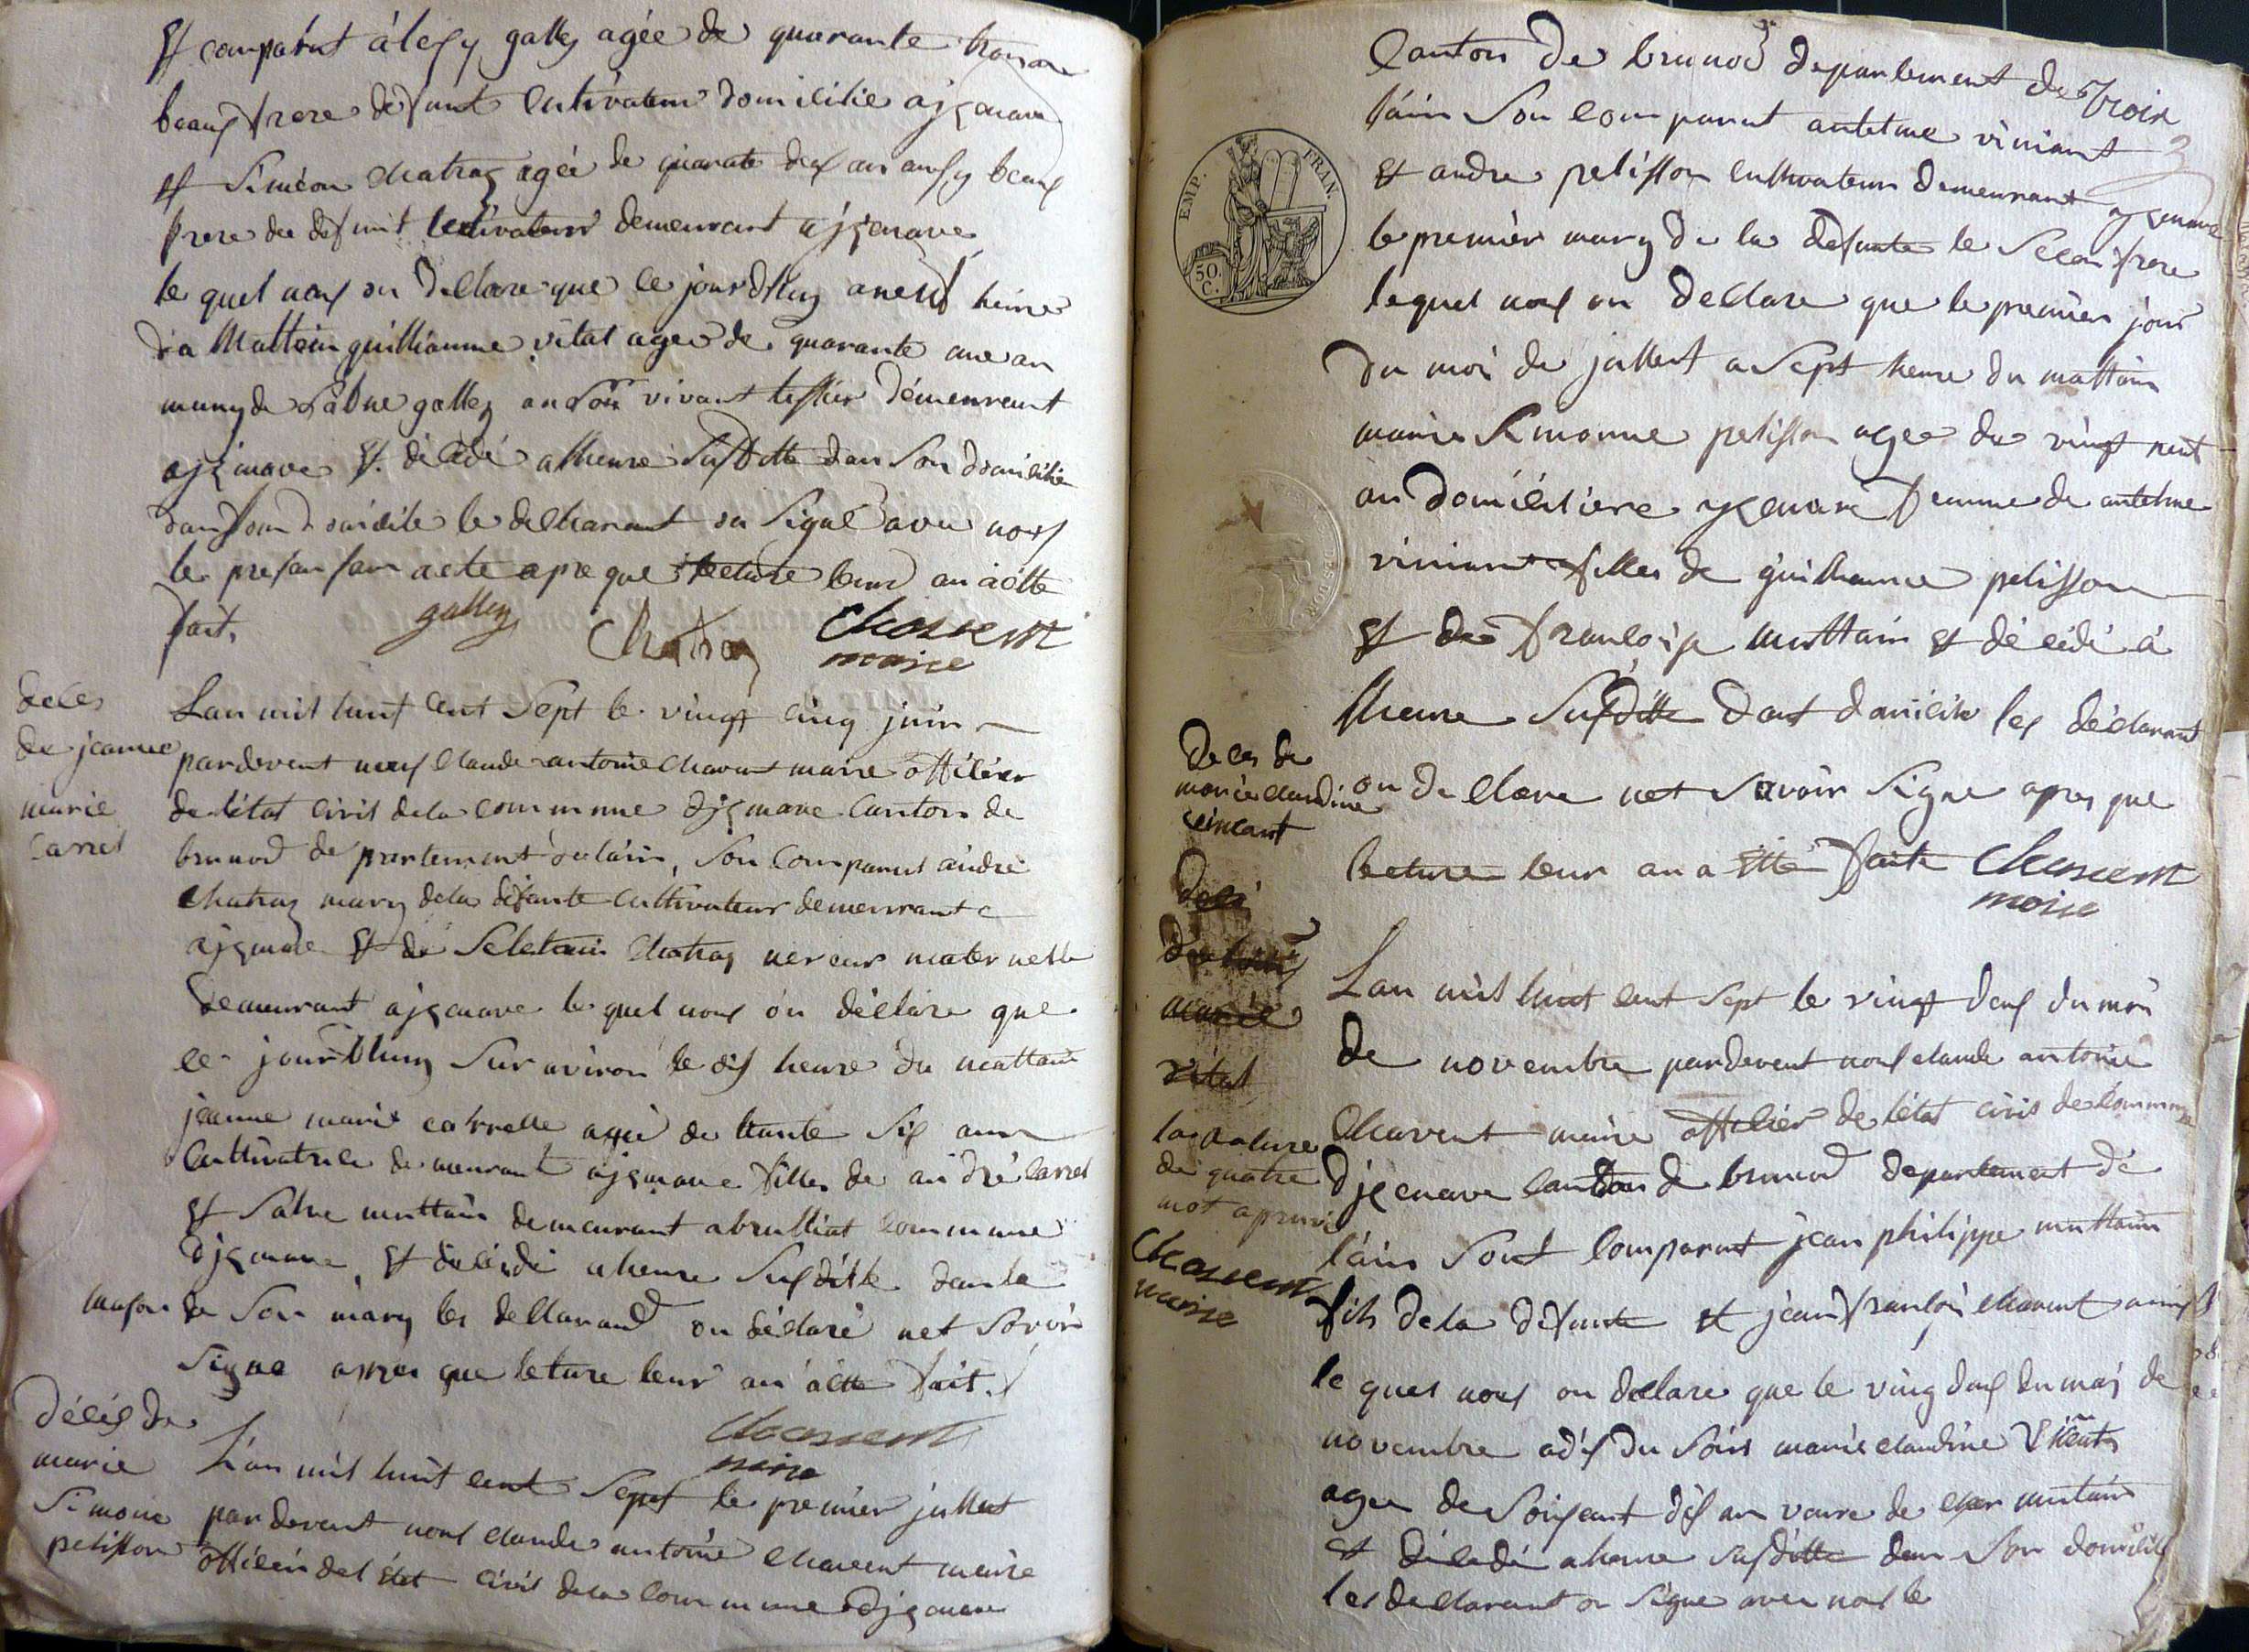 et comparut álexy galley agée de quarante
beauf frere défunt Cultivateur domicilie ajzenave
et Siméon Chatray agée de quarate deux an aussy beauf
frere du défunt Cultivateur demeurant ajzenave
le quel nous on declare que ce jourdhuy a neuf heure
du Mattein guilliaume vital agée de quarante une an
mary de galley an Son vivant déméureunt
ajzenave et décédé a lheure Susditte dan Son domicilie
dan Son domicile le declarant on Signé avec nous
le presan acte apre que lecture leur an a été
fait,
galley Chatray Chavent
maire
deces
de jeanne
marie
Carrel
Lan mil huit Cent Sept le vingt cinq juin
pardevent nous Claude antoine Chavent maire offilier
de létat civil de la commune djzenave Canton de
brunod departement de láin, Son Comparut andré
Chatray mary de la défunte Cultivateur demeurrant
ajzenave et de Chatray maternelle
demeurant ajzenave le quel nous on déclare que
ce jourdhuy Sur aviron le dix heure du mattain
jeanne marie carrelle agée de trante Six ann
Cultivatrice demeurant ajzenave filles de andré Carrel
et muttain demeurant a brulliat Commune
djzenave, et décédé a heure Susditte dan la
maison de Son mary les declarand on déclaré net Savoir
Signe apres que leture leur an a été fait.
Chavent
maire
Décés de
marie
Simone
pelisson
Lan mil huit cent Sept le premier jullest
pardevent nous Claude antoine Chavent maire
offilier del état civil de la Commune djzenave
Canton de brunod departement de
láin Son comparut antelme viniant
et andre pelisson Cultivateur demeurant ajzenave
trois
3
EMP. FRAN.
50.
C.
le premier mary de la défunte le Secon frere
lequel nous on declare que le premier jour
du moi de jullest a Sept heure du mattain
marie Simonne pelisson agée de vingt neuf
an domiciliere ajzenave femme de antelme
viniant filles de guilliaume pelisson
et de françoise muttain et décédé á
lheure Susditte dant domicile les déclarant
on declare net Savoir Signe apres que
lecture leur an a été faite Chavent
maire
Deces de
marie claudine
vincant
Deces
de
marie
vital
la nature
de quatre
mot apruvé
Chavent
maire
Lan mil huit cent Sept le vingt deux du moi
de novembre pardevent nous claude antoine
Chavent maire offilier de létat civil de commune
djzenave Canton de brunod departement de
láin Sont Comparut jean philippe muttain
fils de la défunte et jean françoi Chavent
le quel nous on declare que le vingt deux du moi de
novembre a dix du Soir marie claudine
agée de Soixant dix an veuve de muttain
et décédé a heure susditte dan Son domicile
les declarant on Signe avec nous le